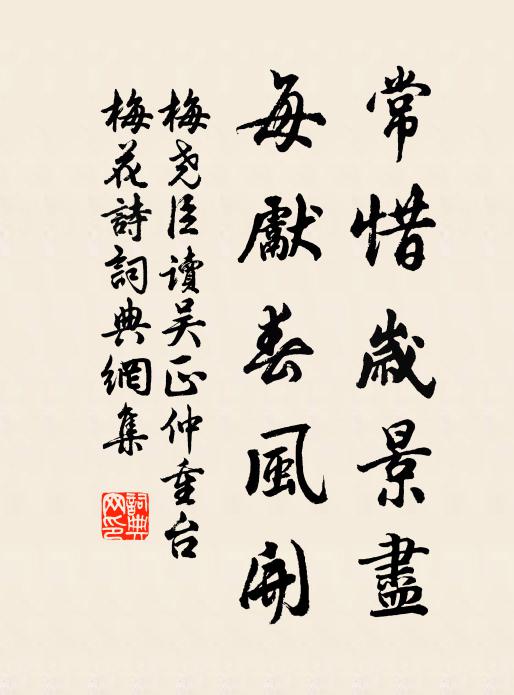 常惜歲景盡
每獻春風開
梅尧臣讀吴正仲重台
梅花詩詞典網集
詞典
网印